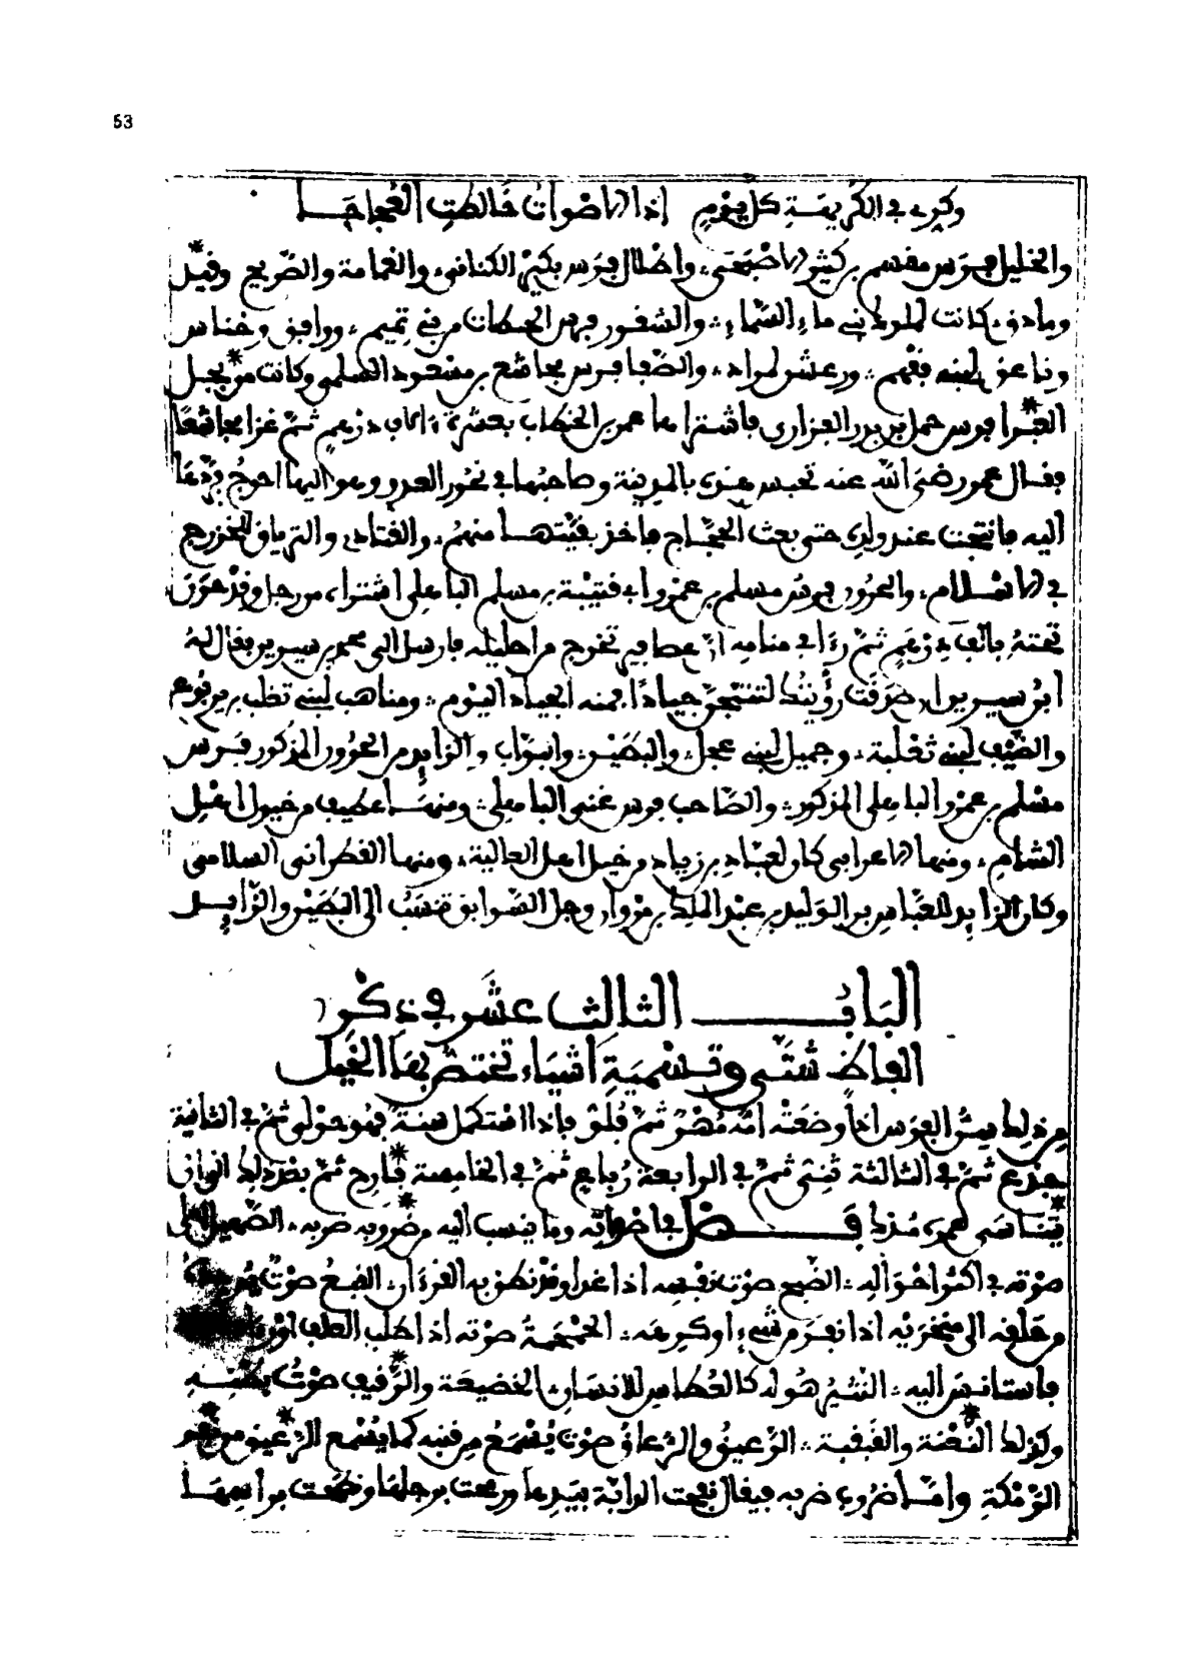 53
وكرى فى الكريهة كل يوم إذا الأصوات خالطت العجاجا
والخليل فرس مقسم بن كثير الأصبحى، وأطلال فرس بكير الكنانى، والغمامة والصريح وقيل
وماذق كانت لملوك بنى ماء السماء، والشقور فرس الحكات من بنى تميم، ووافق وخناس
وناعق لبنى فقيم، ورعشن لمراد، والصفا فرس مجاشع بن مسعود السلمى وكانت من نجل
الغبرا فرس حمل بن بدر الفزارى فاشتراها عمر بن الخطاب بعشرة ءالاف درهم ثم غزا مجاشعًا
فقال عمر رضى الله عنه تحبس هذى بالمدينة وصاحبها فى نحور العدو وهو اليها أحوج فردها
اليه فانتجت عند ولده حتى بعث الحجاج فأخذ بقيتها منهم، والقتادى والترياق للخزرج
فى الاسلام، والحرون فرس مسلم بن عمرو أبى قتيبة بن مسلم الباهلى اشتراه من رجل وقد هون
تحته بألف درهم ثم رءا فى منامه ان عصافير تخرج من احليله فأرسل الى محمد بن سيرين فقال له
ابن سيرين ان صدقت رؤيتك لتنتجن جيادًا فمنه الجياد اليوم، ومناهب لبنى تعلب بن يربوع
والضيف لبنى ثعلبة، وجميل لبنى عجل، والبطين، والبواب والزايد من الحرون المذكور فرس
مسلم بن عمرو الباهلى المذكور، والصاحب فرس غنى الباهلى، ومنها عطيف من خيول اهل
الشام، ومنها الأعرابى كان لعباد بن زياد من خيل اهل العالية، ومنها القطرانى السلامى
وكان الزايد للعباس بن الوليد بن عبد الملك بن مروان وجل السوابق تنسب الى البطين والزايد
الباب الثالث عشر فى ذكر
الفاظ شتى وتسمية أشياء تختص بها الخيل
من ذلك سن الفرس اذا وضعته أمه مهر ثم فلو فإذا استكمل سنة فهو حولى ثم فى الثانية
جذع ثم فى الثالثة ثنى ثم فى الرابعة رباع ثم فى الخامسة قارح ثم بعد ذلك
يتناسى عمره مذك فصل فى أصواته وما ينسب اليه وضروب ضربه، الصهيل
صوته فى أكثر أحواله، الضبح صوت نفسه اذا عدا وقد نطق به القرءان، القبع صوت
من حلقه الى منخريه اذا نفر من شىء أو كرهه، الحمحمة صوته اذا طلب العلف أو
فاستأنس اليه، النثير هو له كالعطاس للانسان، الخضيعة والوقيب صوت بطنه
وكذلك والقبقبة، الرعيق والرعاق صوت يسمع من قنبه كما يسمع الوعيق من
الرمكة وأما ضروب ضربه فيقال نفحت الدابة بيدها ورمحت برجلها ونطحت برأسها